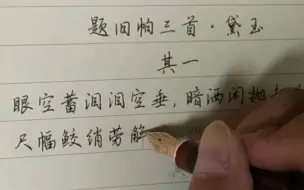 题旧帕三首·黛玉
其一
眼空蓄泪泪空垂，暗洒闲抛
尺幅鲛绡劳解